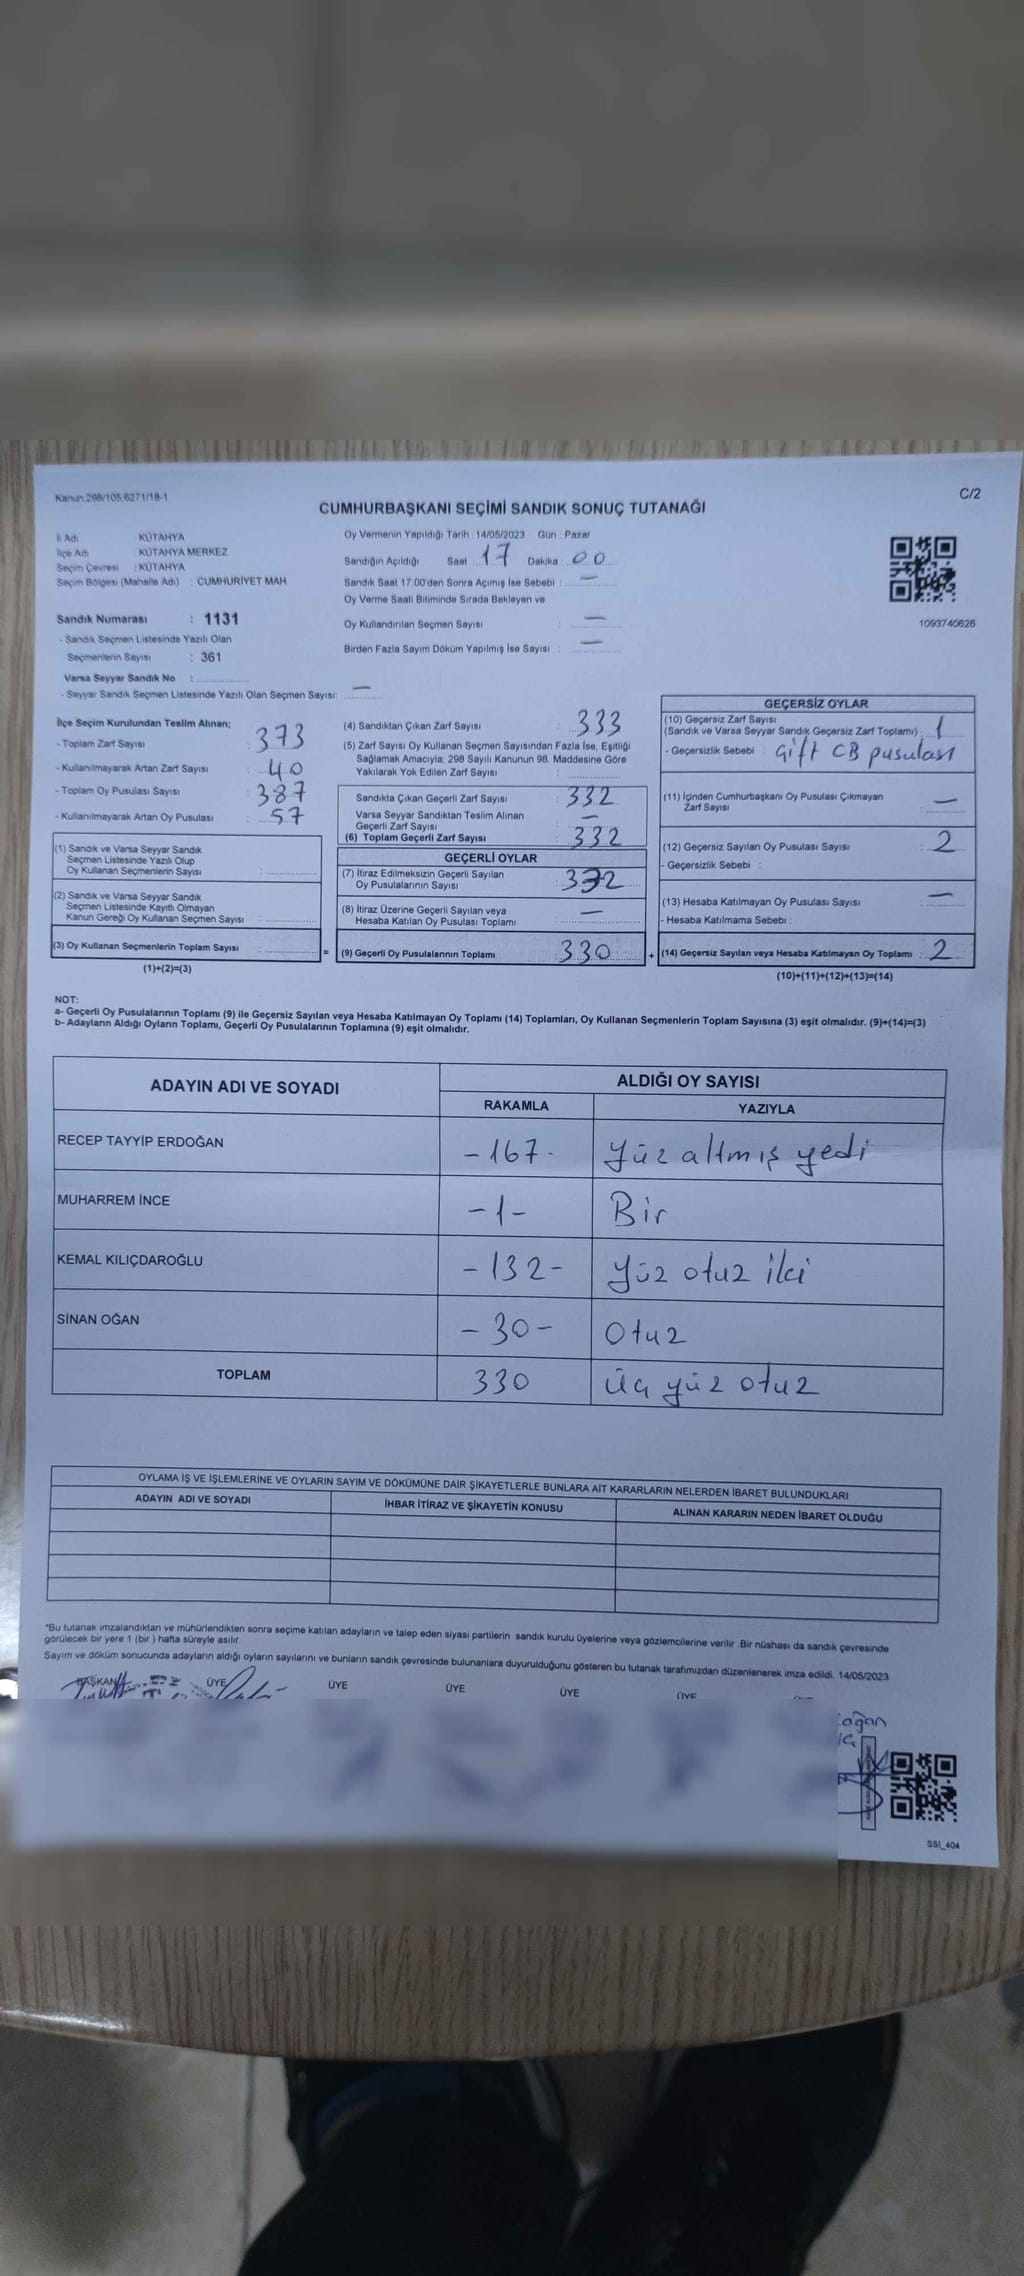 Kanun:298/105,6271/18-1
C/2
CUMHURBAŞKANI SEÇİMİ SANDIK SONUÇ TUTANAĞI
İl Adı : KÜTAHYA
İlçe Adı : KÜTAHYA MERKEZ
Seçim Çevresi : KÜTAHYA
Seçim Bölgesi (Mahalle Adı) : CUMHURİYET MAH
Sandık Numarası : 1131
- Sandık Seçmen Listesinde Yazılı Olan
Seçmenlerin Sayısı : 361
Varsa Seyyar Sandık No :
- Seyyar Sandık Seçmen Listesinde Yazılı Olan Seçmen Sayısı: —
Oy Vermenin Yapıldığı Tarih : 14/05/2023 Gün : Pazar
Sandığın Açıldığı Saat : 17 Dakika : 00
Sandık Saat 17:00'den Sonra Açımış İse Sebebi : —
Oy Verme Saati Bitiminde Sırada Bekleyen ve
Oy Kullandırılan Seçmen Sayısı : —
Birden Fazla Sayım Döküm Yapılmış İse Sayısı : —
1093740626
İlçe Seçim Kurulundan Teslim Alınan;
- Toplam Zarf Sayısı : 373
- Kullanılmayarak Artan Zarf Sayısı : 40
- Toplam Oy Pusulası Sayısı : 387
- Kullanılmayarak Artan Oy Pusulası : 57
(1) Sandık ve Varsa Seyyar Sandık
Seçmen Listesinde Yazılı Olup
Oy Kullanan Seçmenlerin Sayısı :
(2) Sandık ve Varsa Seyyar Sandık
Seçmen Listesinde Kayıtlı Olmayan
Kanun Gereği Oy Kullanan Seçmen Sayısı :
(3) Oy Kullanan Seçmenlerin Toplam Sayısı :
(1)+(2)=(3)
(4) Sandıktan Çıkan Zarf Sayısı : 333
(5) Zarf Sayısı Oy Kullanan Seçmen Sayısından Fazla İse, Eşitliği
Sağlamak Amacıyla; 298 Sayılı Kanunun 98. Maddesine Göre
Yakılarak Yok Edilen Zarf Sayısı :
Sandıkta Çıkan Geçerli Zarf Sayısı : 332
Varsa Seyyar Sandıktan Teslim Alınan
Geçerli Zarf Sayısı : —
(6) Toplam Geçerli Zarf Sayısı : 332
GEÇERLİ OYLAR
(7) İtiraz Edilmeksizin Geçerli Sayılan
Oy Pusulalarının Sayısı :
(8) İtiraz Üzerine Geçerli Sayılan veya
Hesaba Katılan Oy Pusulası Toplamı : —
= (9) Geçerli Oy Pusulalarının Toplamı : 330
GEÇERSİZ OYLAR
(10) Geçersiz Zarf Sayısı
(Sandık ve Varsa Seyyar Sandık Geçersiz Zarf Toplamı) : 1
- Geçersizlik Sebebi : Çift CB pusulası
(11) İçinden Cumhurbaşkanı Oy Pusulası Çıkmayan
Zarf Sayısı : —
(12) Geçersiz Sayılan Oy Pusulası Sayısı : 2
- Geçersizlik Sebebi :
(13) Hesaba Katılmayan Oy Pusulası Sayısı : —
- Hesaba Katılmama Sebebi :
+ (14) Geçersiz Sayılan veya Hesaba Katılmayan Oy Toplamı : 2
(10)+(11)+(12)+(13)=(14)
NOT:
a- Geçerli Oy Pusulalarının Toplamı (9) ile Geçersiz Sayılan veya Hesaba Katılmayan Oy Toplamı (14) Toplamları, Oy Kullanan Seçmenlerin Toplam Sayısına (3) eşit olmalıdır. (9)+(14)=(3)
b- Adayların Aldığı Oyların Toplamı, Geçerli Oy Pusulalarının Toplamına (9) eşit olmalıdır.
ADAYIN ADI VE SOYADI ALDIĞI OY SAYISI
RAKAMLA YAZIYLA
RECEP TAYYİP ERDOĞAN -167- Yüz altmış yedi
MUHARREM İNCE -1- Bir
KEMAL KILIÇDAROĞLU -132- Yüz otuz iki
SİNAN OĞAN -30- Otuz
TOPLAM 330 Üç yüz otuz
OYLAMA İŞ VE İŞLEMLERİNE VE OYLARIN SAYIM VE DÖKÜMÜNE DAİR ŞİKAYETLERLE BUNLARA AİT KARARLARIN NELERDEN İBARET BULUNDUKLARI
ADAYIN ADI VE SOYADI İHBAR İTİRAZ VE ŞİKAYETİN KONUSU ALINAN KARARIN NEDEN İBARET OLDUĞU
*Bu tutanak imzalandıktan ve mühürlendikten sonra seçime katılan adayların ve talep eden siyasi partilerin sandık kurulu üyelerine veya gözlemcilerine verilir. Bir nüshası da sandık çevresinde
görülecek bir yere 1 (bir ) hafta süreyle asılır.
Sayım ve döküm sonucunda adayların aldığı oyların sayılarını ve bunların sandık çevresinde bulunanlara duyurulduğunu gösteren bu tutanak tarafımızdan düzenlenerek imza edildi. 14/05/2023
BAŞKAN ÜYE ÜYE ÜYE ÜYE ÜYE
SSI_404